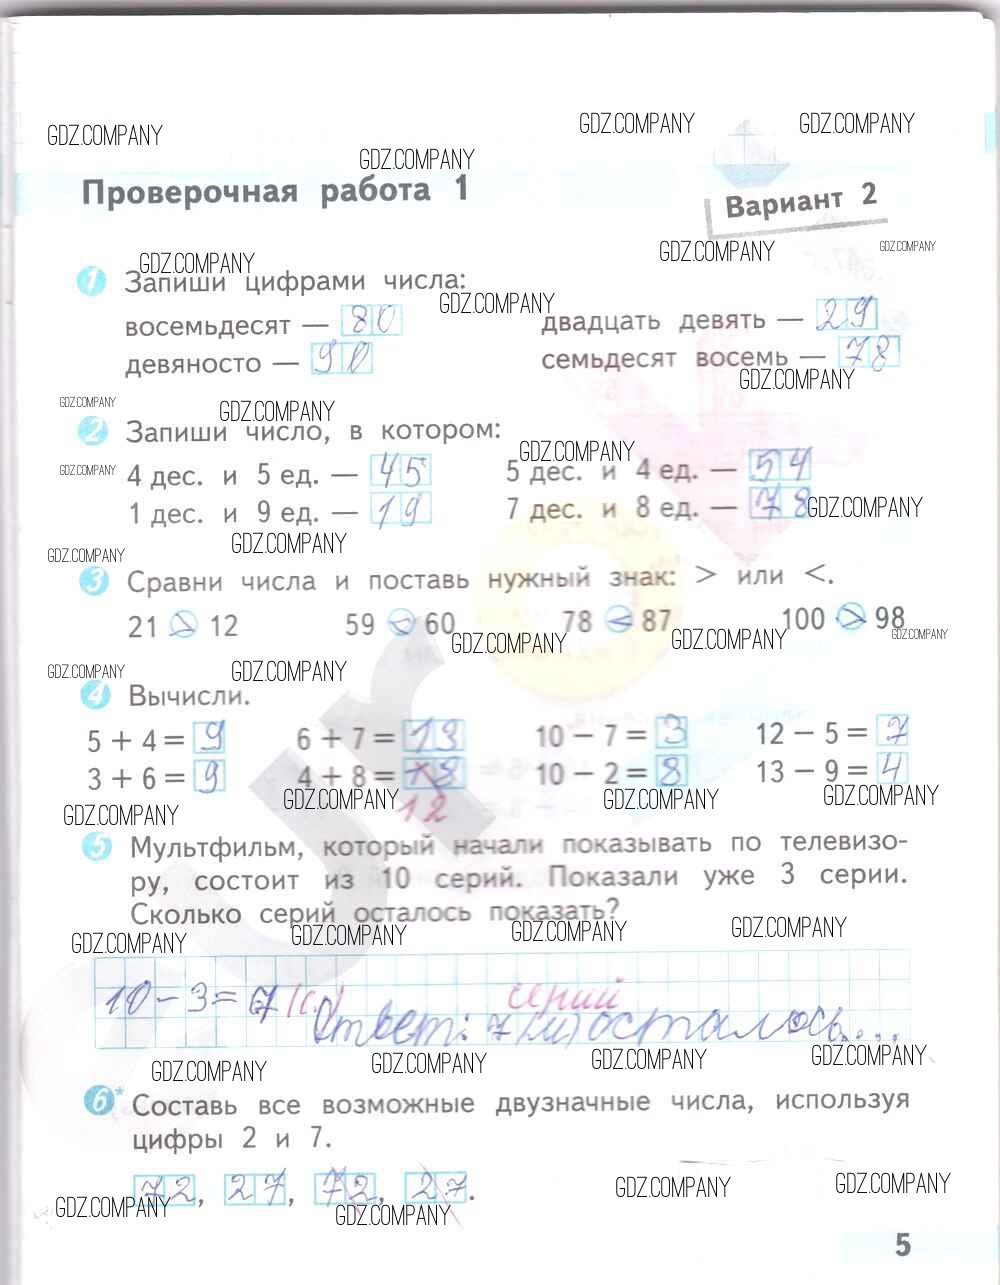 GDZ.COMPANY GDZ.COMPANY GDZ.COMPANY
GDZ.COMPANY
Проверочная работа 1
Вариант 2
GDZ.COMPANY GDZ.COMPANY GDZ.COMPANY
1 Запиши цифрами числа:
GDZ.COMPANY
восемьдесят — 80 двадцать девять — 29
девяносто — 90 семьдесят восемь — 78
GDZ.COMPANY
GDZ.COMPANY GDZ.COMPANY
2 Запиши число, в котором:
GDZ.COMPANY GDZ.COMPANY
4 дес. и 5 ед. — 45 5 дес. и 4 ед. — 54
1 дес. и 9 ед. — 19 7 дес. и 8 ед. — 78
GDZ.COMPANY
GDZ.COMPANY GDZ.COMPANY
3 Сравни числа и поставь нужный знак: > или <.
21 > 12 59 < 60 78 < 87 100 > 98
GDZ.COMPANY GDZ.COMPANY GDZ.COMPANY
GDZ.COMPANY GDZ.COMPANY
4 Вычисли.
5 + 4 = 9 6 + 7 = 13 10 − 7 = 3 12 − 5 = 7
3 + 6 = 9 4 + 8 = 10 − 2 = 8 13 − 9 = 4
12
GDZ.COMPANY GDZ.COMPANY GDZ.COMPANY GDZ.COMPANY
5 Мультфильм, который начали показывать по телевизо-
ру, состоит из 10 серий. Показали уже 3 серии.
Сколько серий осталось показать?
GDZ.COMPANY GDZ.COMPANY GDZ.COMPANY GDZ.COMPANY
10 − 3 = 7 (с.)
серий
Ответ: 7 осталось...
GDZ.COMPANY GDZ.COMPANY GDZ.COMPANY GDZ.COMPANY
6* Составь все возможные двузначные числа, используя
цифры 2 и 7.
72, 27, 72, 27.
GDZ.COMPANY GDZ.COMPANY GDZ.COMPANY GDZ.COMPANY
5